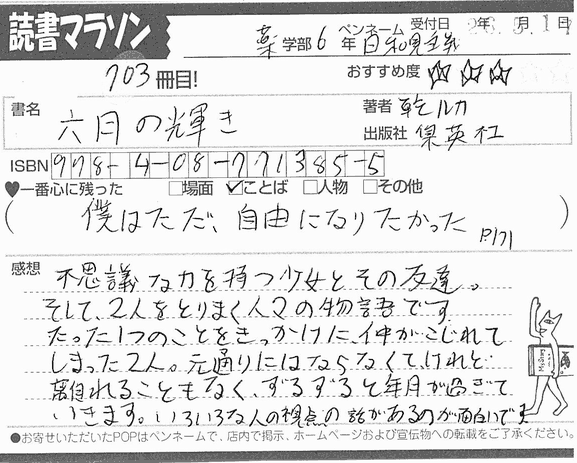 読書マラソン
薬学部6年 ペンネーム 日和見主義 受付日
703冊目! おすすめ度 ☆☆☆
書名 六月の輝き
著者 乾ルカ
出版社 集英社
ISBN 978-4-08-771385-5
♥一番心に残った □場面 ☑ことば □人物 □その他
(僕はただ、自由になりたかった P.171)
感想 不思議な力を持つ少女とその友達。
そして、2人をとりまく人々の物語です。
たった1つのことをきっかけに、仲がこじれて
しまった2人。元通りにはならなくて、けれど
離れることもなく、ずるずると年月が過ぎて
いきます。いろいろな人の視点の話があるのが面白いです
●お寄せいただいたPOPはペンネームで、店内で掲示、ホームページおよび宣伝物への転載をご了承ください。